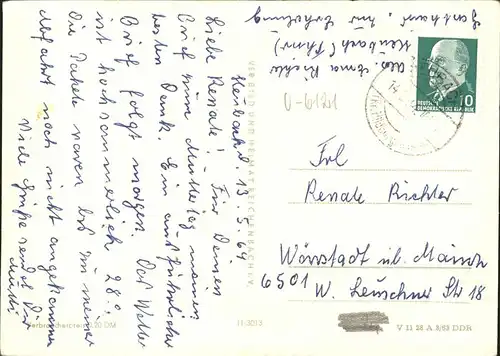 Abs. Erna Richter
Heubach (Thür)
Gasthaus "zur Erholung"
Heubach, d. 13. 5. 64
Liebe Renate! Für Deinen
Brief zum Muttertag meinen
besten Dank. Ein ausführlicher
Brief folgt morgen. Das Wetter
ist hochsommerlich 28°.
Die Pakete waren bis zu meiner
Abfahrt noch nicht angekommen
Viele Grüße sendet Dir
Mutti
Verbraucherpreis 0,20 DM
VERLAG BILD UND HEIMAT REICHENBACH I. V.
11/3013
DEUTSCHE
DEMOKRATISCHE REPUBLIK
10
Frl
Renate Richter
Wörrstadt üb. Mainz
6501 W. Leuschner Str 18
V 11 28 A 3/63 DDR